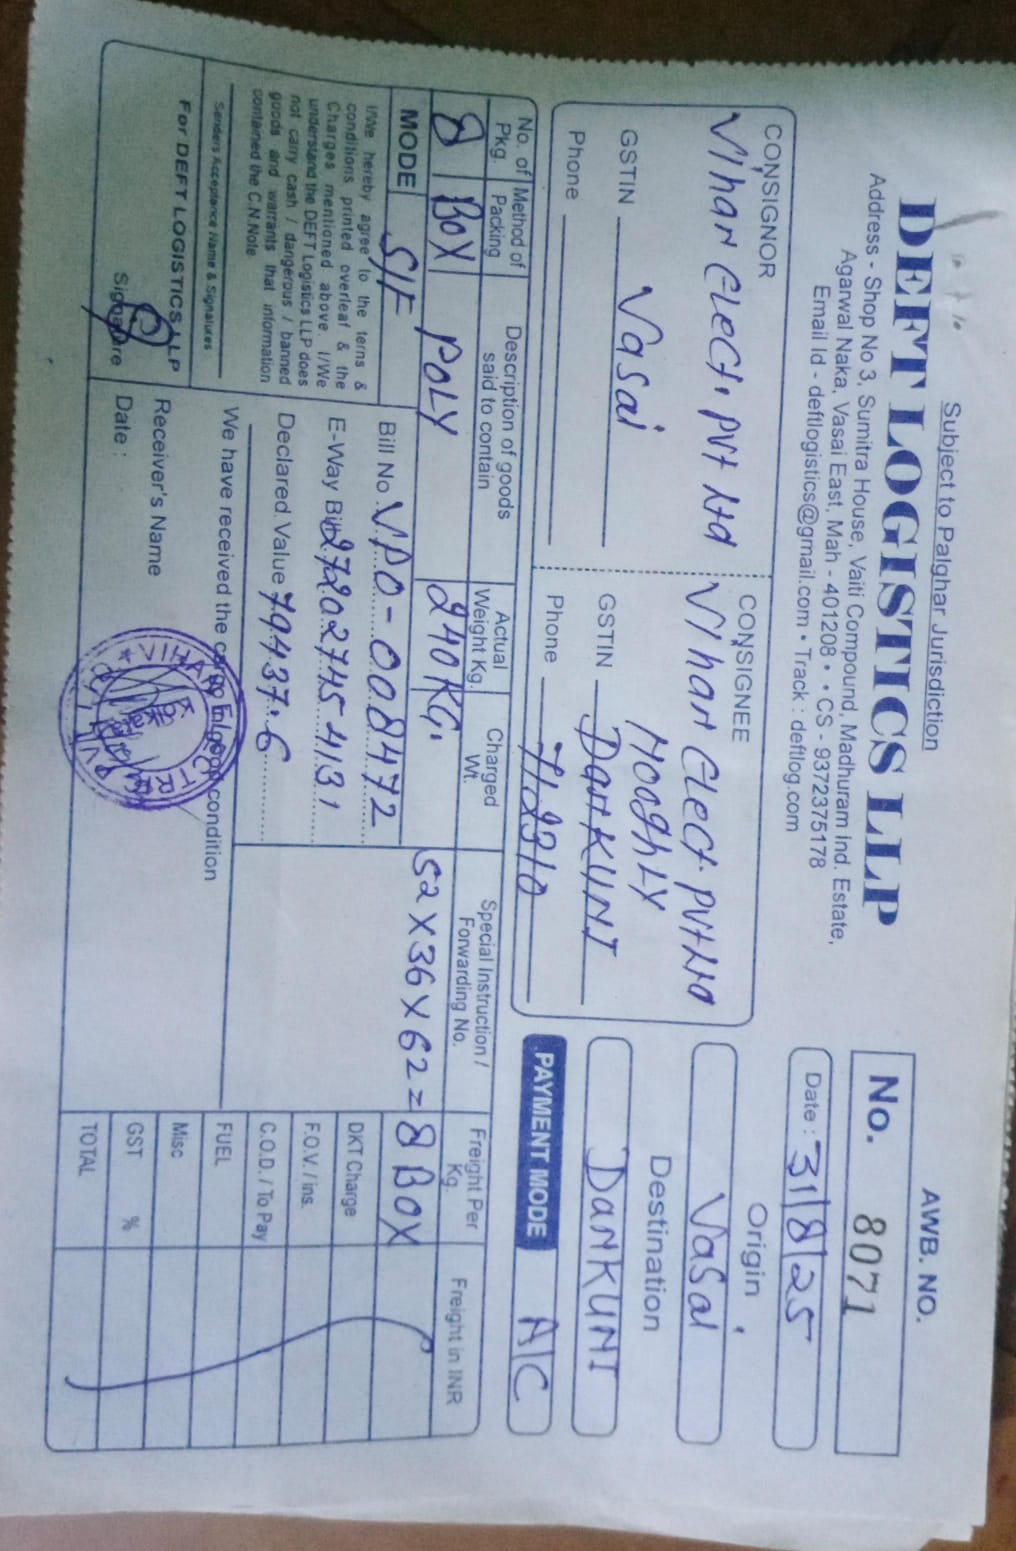 Subject to Palghar Jurisdiction
DEFT LOGISTICS LLP
Address - Shop No 3, Sumitra House, Vaiti Compound, Madhuram Ind. Estate,
Agarwal Naka, Vasai East. Mah - 401208 • • CS - 9372375178
Email Id - deftlogistics@gmail.com • Track : deftlog.com
AWB. NO.
No. 8071
Date : 31/8/25
CONSIGNOR
Vihar Elect. Pvt Ltd
Vasai
GSTIN
Phone
CONSIGNEE
Vihar Elect. Pvt Ltd
HooghLY
GSTIN DanKUNI
Phone 712310
Origin
Vasai
Destination
DanKUNI
PAYMENT MODE A/C
No. of Pkg. Method of Packing Description of goods said to contain Actual Weight Kg. Charged Wt. Special Instruction / Forwarding No. Freight Per Kg. Freight in INR
8 BOX POLY 240 KG. 52 X 36 X 62 = 8 BOX
MODE S/F
Bill No. V.P.O - 008472
E-Way Bill 272027454131
Declared Value 79437.6
I/We hereby agree to the terns &
conditions printed overleaf & the
Charges mentioned above. I/We
understand the DEFT Logistics LLP does
not carry cash / dangerous / banned
goods and warrants that information
contained the C.N.Note
Senders Acceptance Name & Signatures
For DEFT LOGISTICS LLP
Signature
We have received the cargo in good condition
Receiver's Name
Date :
DKT Charge
F.O.V. / ins.
C.O.D. / To Pay
FUEL
Misc
GST %
TOTAL